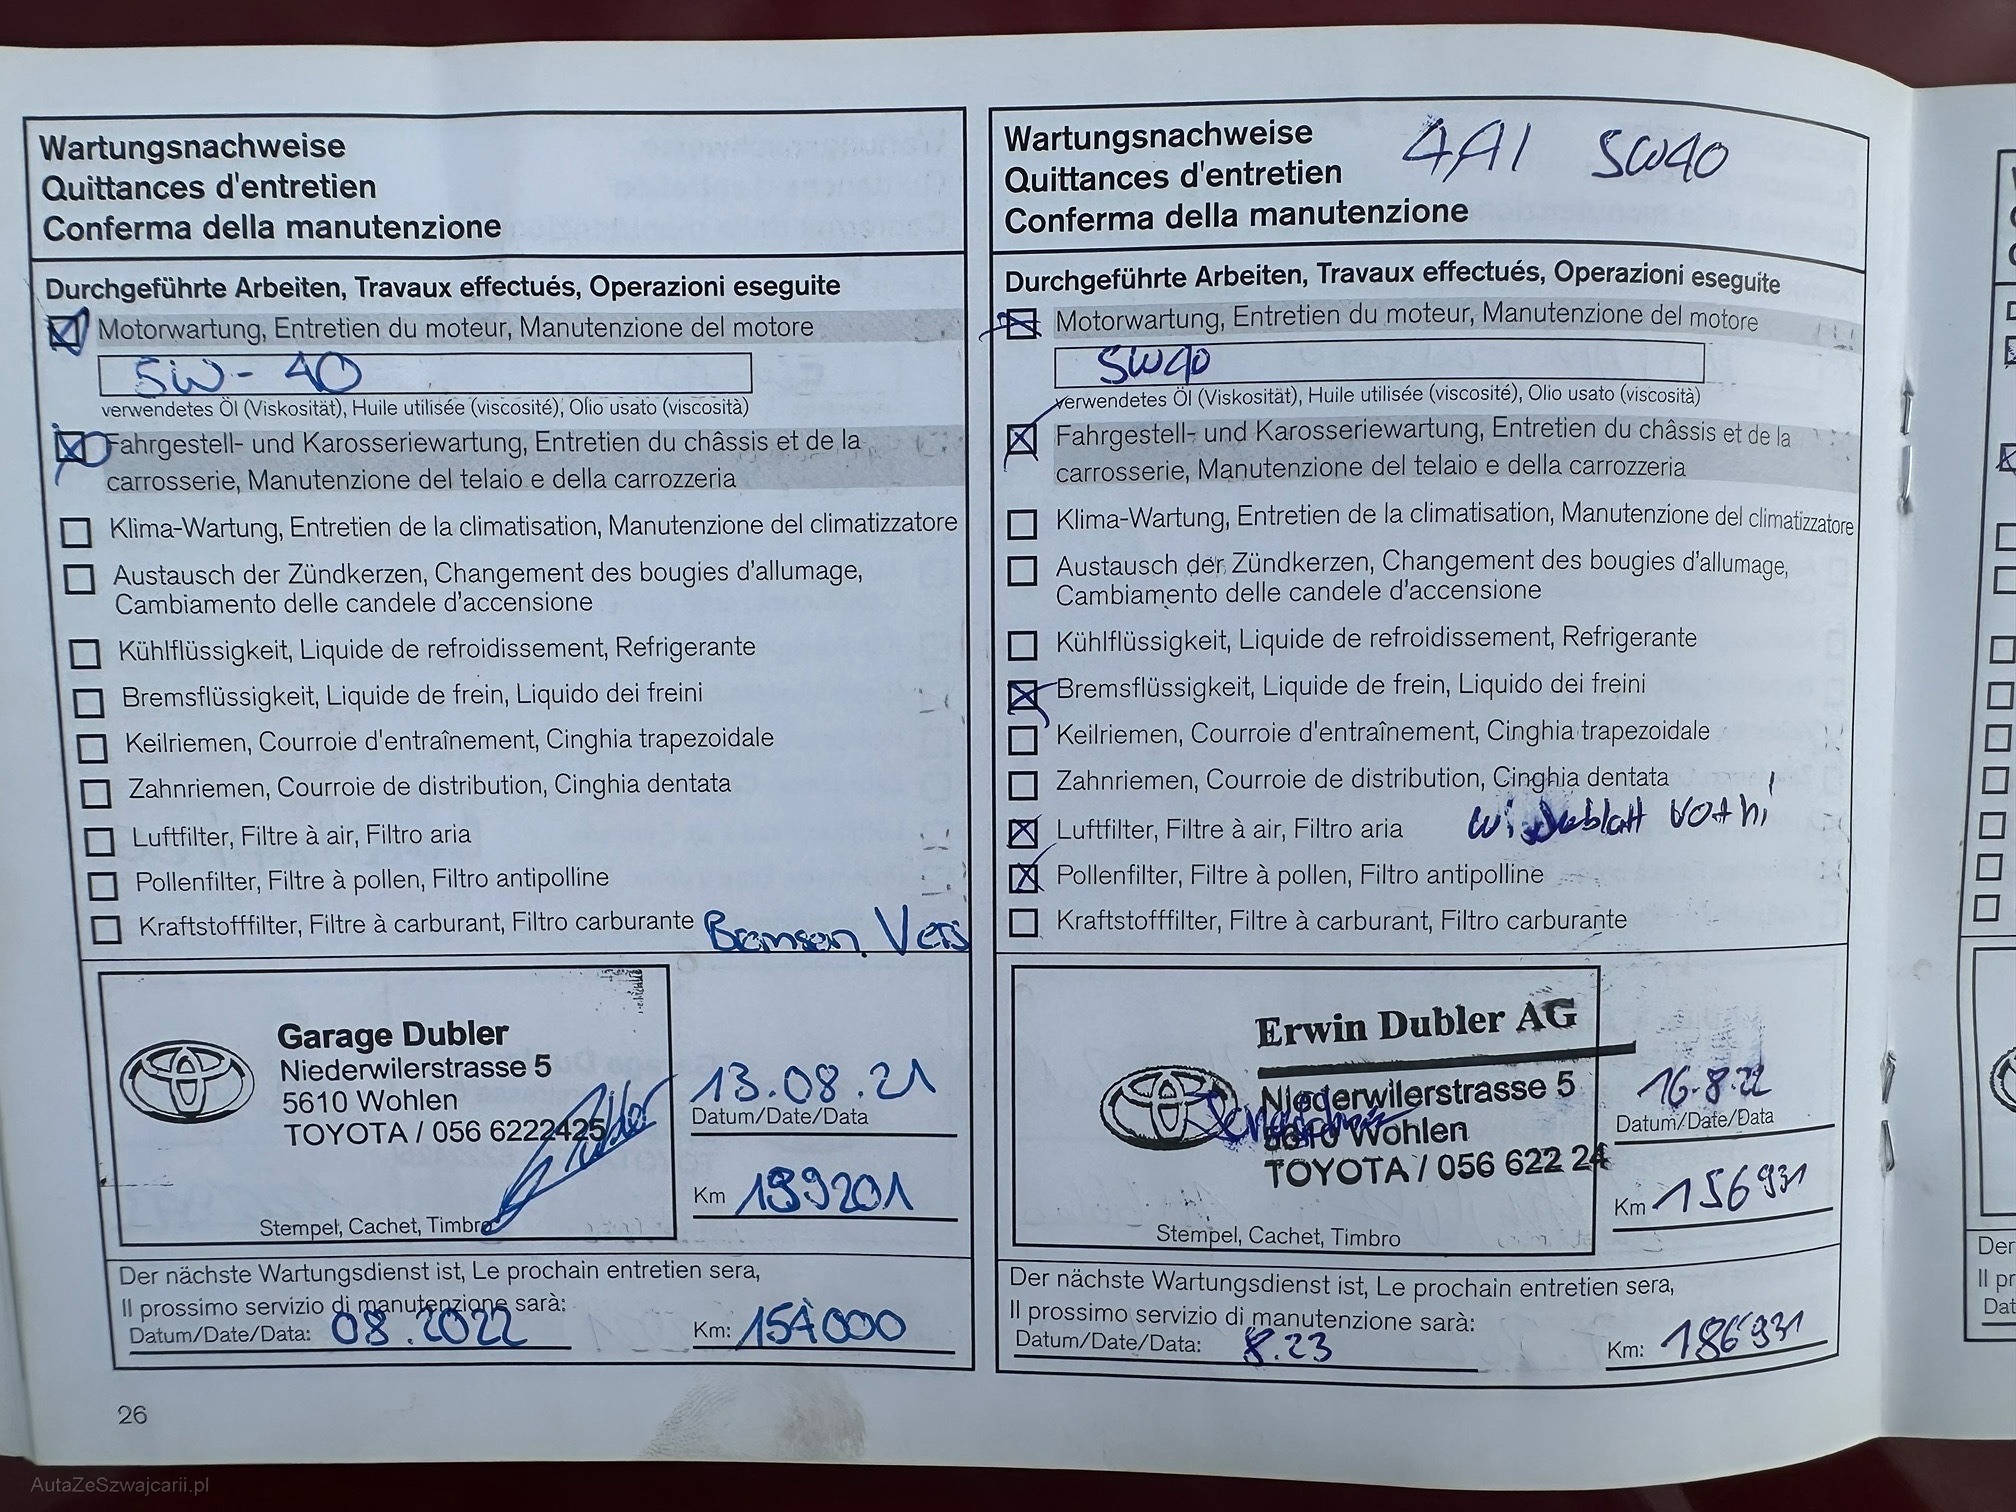 Wartungsnachweise
Quittances d'entretien
Conferma della manutenzione
Durchgeführte Arbeiten, Travaux effectués, Operazioni eseguite
Motorwartung, Entretien du moteur, Manutenzione del motore
5W-40
verwendetes Öl (Viskosität), Huile utilisée (viscosité), Olio usato (viscosità)
Fahrgestell- und Karosseriewartung, Entretien du châssis et de la
carrosserie, Manutenzione del telaio e della carrozzeria
Klima-Wartung, Entretien de la climatisation, Manutenzione del climatizzatore
Austausch der Zündkerzen, Changement des bougies d'allumage,
Cambiamento delle candele d'accensione
Kühlflüssigkeit, Liquide de refroidissement, Refrigerante
Bremsflüssigkeit, Liquide de frein, Liquido dei freini
Keilriemen, Courroie d'entraînement, Cinghia trapezoidale
Zahnriemen, Courroie de distribution, Cinghia dentata
Luftfilter, Filtre à air, Filtro aria
Pollenfilter, Filtre à pollen, Filtro antipolline
Kraftstofffilter, Filtre à carburant, Filtro carburante
Garage Dubler
Niederwilerstrasse 5
5610 Wohlen
TOYOTA / 056 6222425
Stempel, Cachet, Timbro
13.08.21
Datum/Date/Data
Km 139201
Der nächste Wartungsdienst ist, Le prochain entretien sera,
Il prossimo servizio di manutenzione sarà:
Datum/Date/Data: 08.2022 Km: 154000
26
Wartungsnachweise
Quittances d'entretien 4A1 5W40
Conferma della manutenzione
Durchgeführte Arbeiten, Travaux effectués, Operazioni eseguite
Motorwartung, Entretien du moteur, Manutenzione del motore
5W40
verwendetes Öl (Viskosität), Huile utilisée (viscosité), Olio usato (viscosità)
Fahrgestell- und Karosseriewartung, Entretien du châssis et de la
carrosserie, Manutenzione del telaio e della carrozzeria
Klima-Wartung, Entretien de la climatisation, Manutenzione del climatizzatore
Austausch der Zündkerzen, Changement des bougies d'allumage,
Cambiamento delle candele d'accensione
Kühlflüssigkeit, Liquide de refroidissement, Refrigerante
Bremsflüssigkeit, Liquide de frein, Liquido dei freini
Keilriemen, Courroie d'entraînement, Cinghia trapezoidale
Zahnriemen, Courroie de distribution, Cinghia dentata
Luftfilter, Filtre à air, Filtro aria
Pollenfilter, Filtre à pollen, Filtro antipolline
Kraftstofffilter, Filtre à carburant, Filtro carburante
Erwin Dubler AG
Niederwilerstrasse 5
5610 Wohlen
TOYOTA / 056 622 24
Stempel, Cachet, Timbro
16.8.22
Datum/Date/Data
Km 156931
Der nächste Wartungsdienst ist, Le prochain entretien sera,
Il prossimo servizio di manutenzione sarà:
Datum/Date/Data: 8.23 Km: 186931
Der
Il pr
Dat
AutaZeSzwajcarii.pl